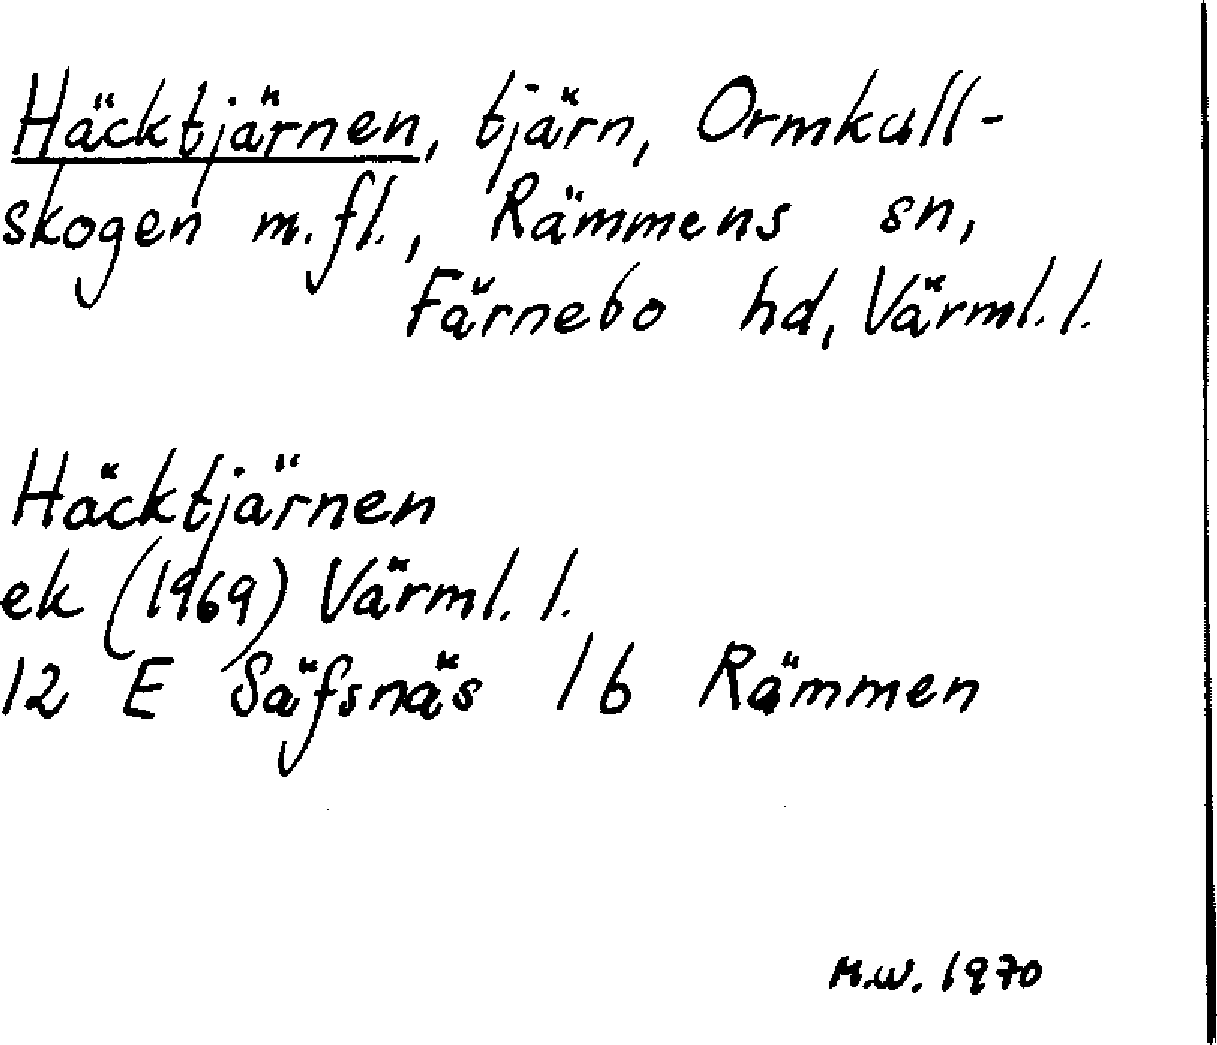 Häcktjärnen, tjärn, Ormkull-
skogen m.fl., Rämmens sn,
Färnebo hd, Värml. l.
Häcktjärnen
ek (1969) Värml. l.
12 E Säfsnäs 1 b Rämmen
M.W. 1970